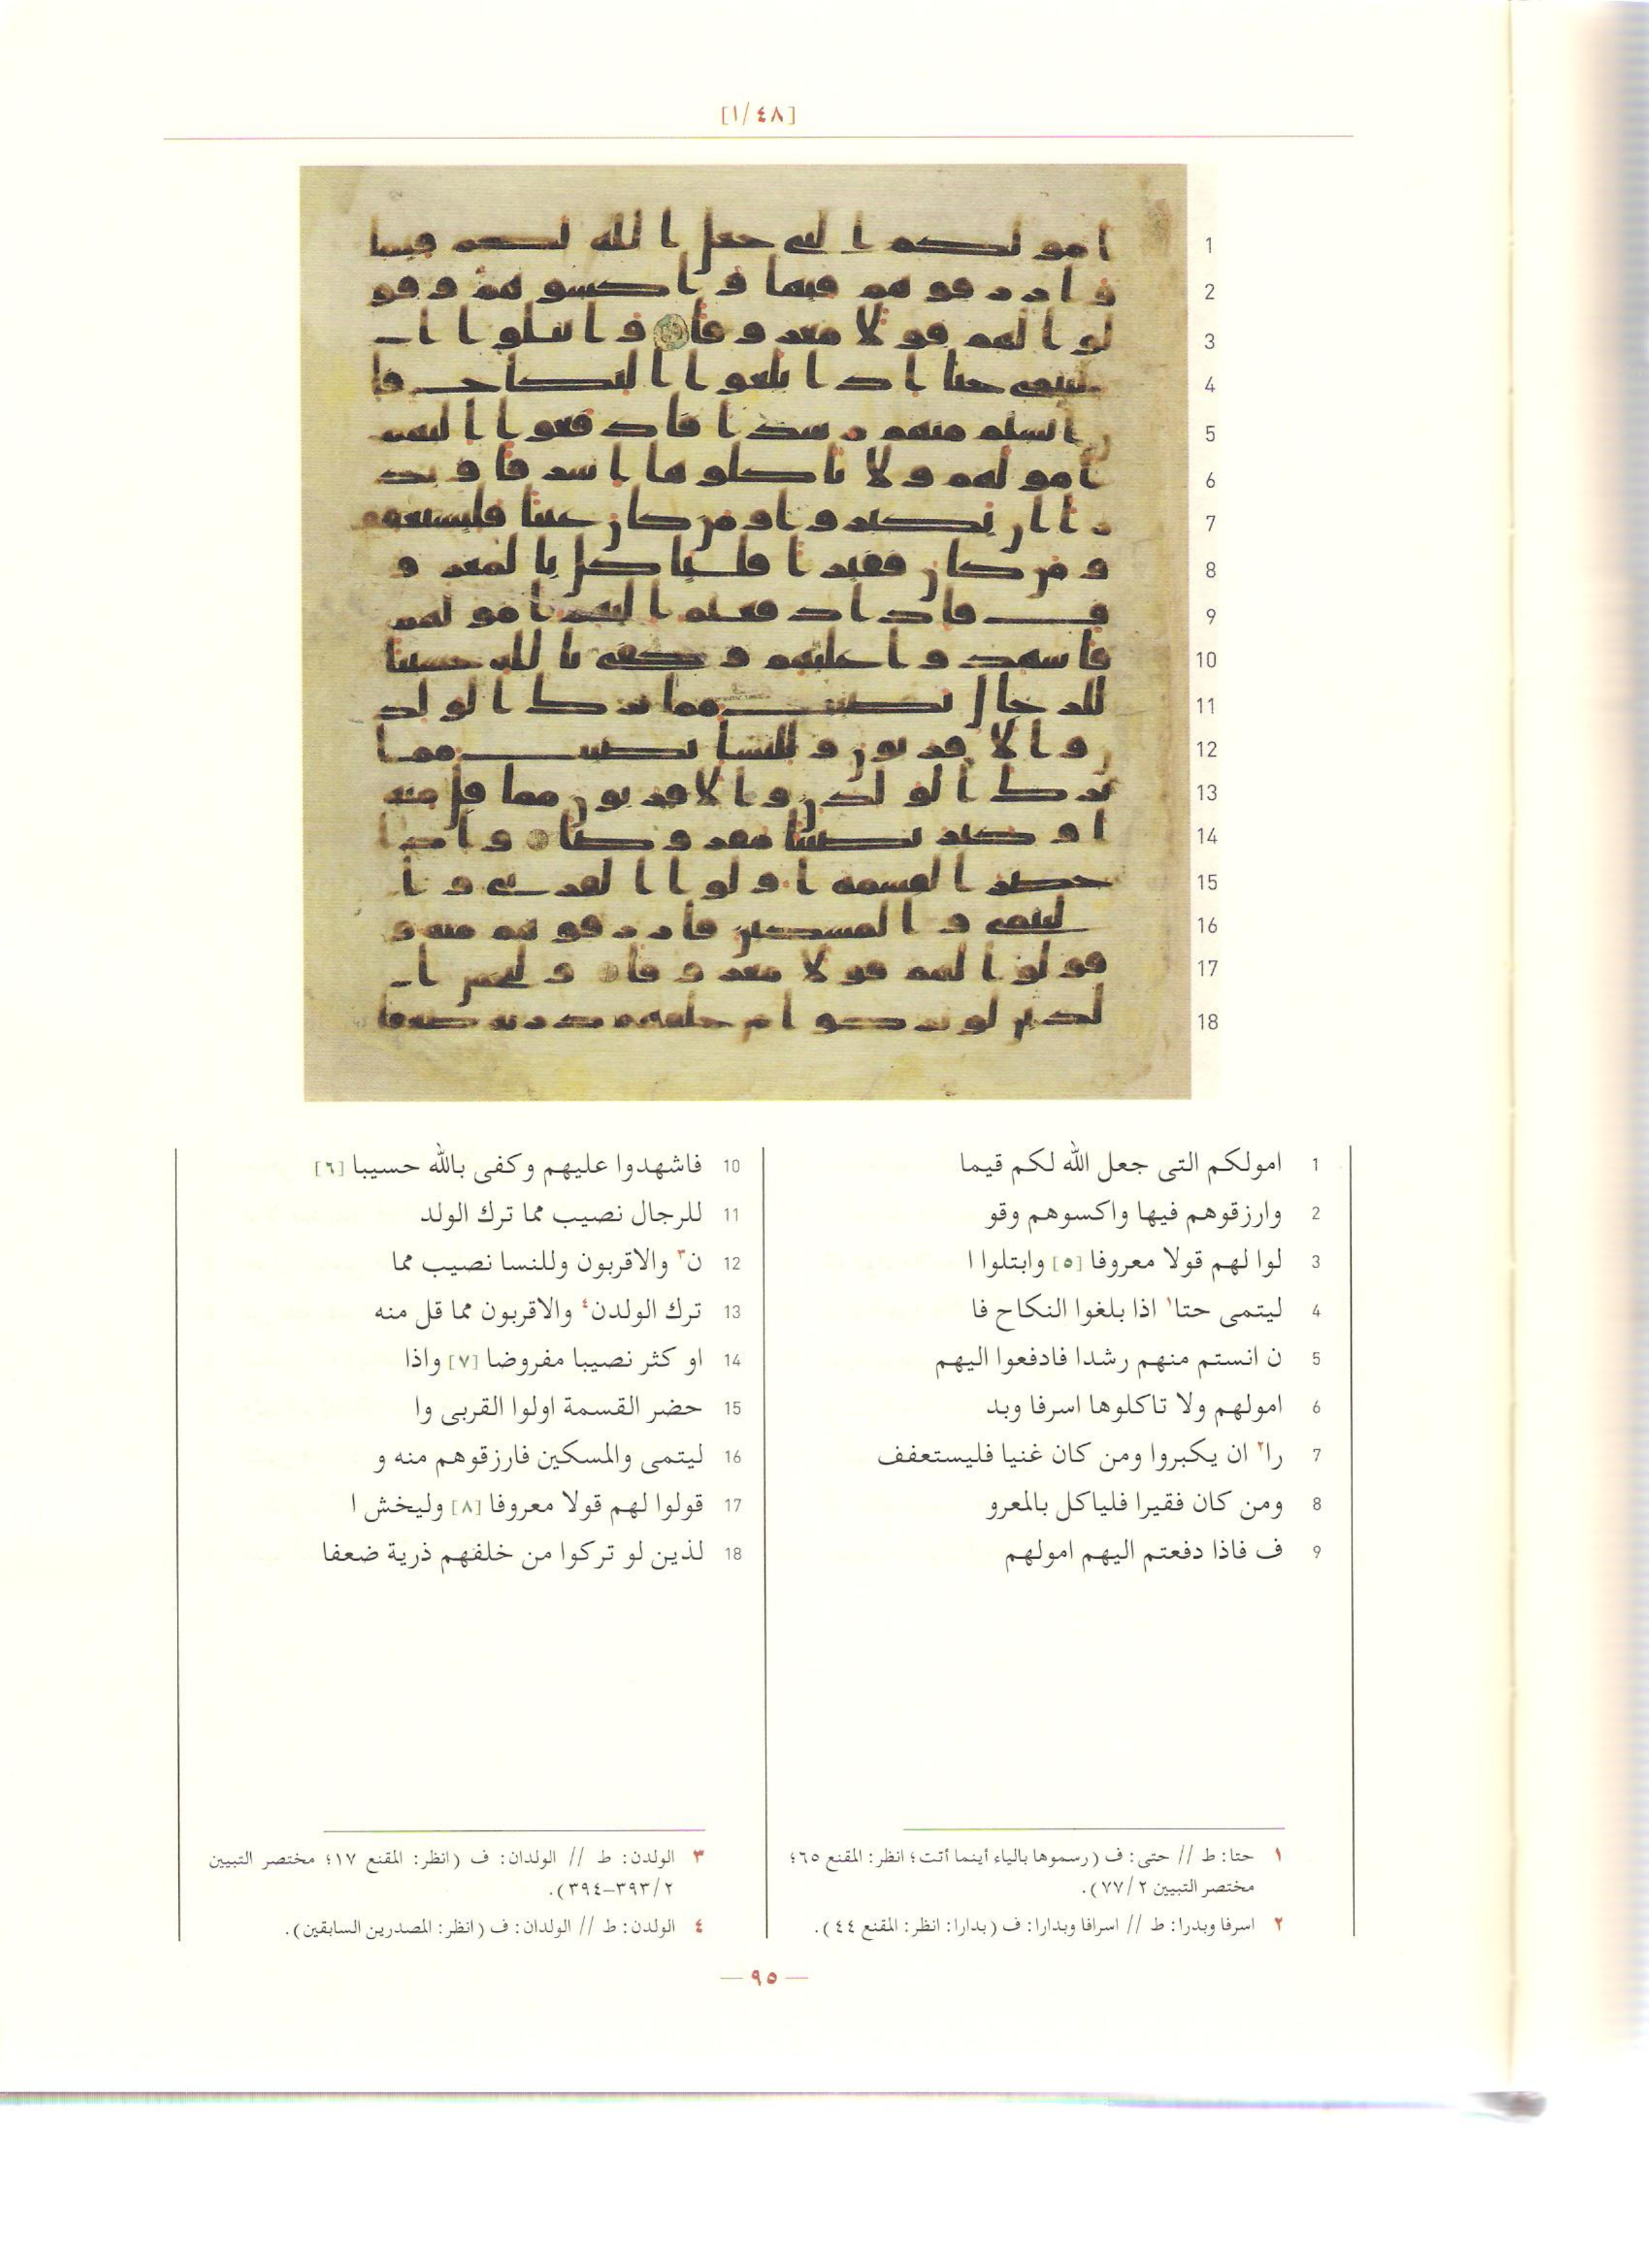 [٤٨/١]
1 امولكم التى جعل الله لكم قيما
2 وارزقوهم فيها واكسوهم وقو
3 لوا لهم قولا معروفا [٥] وابتلوا ا
4 ليتمى حتا١ اذا بلغوا النكاح فا
5 ن انستم منهم رشدا فادفعوا اليهم
6 امولهم ولا تاكلوها اسرفا وبد
7 را٢ ان يكبروا ومن كان غنيا فليستعفف
8 ومن كان فقيرا فلياكل بالمعرو
9 ف فاذا دفعتم اليهم امولهم
10 فاشهدوا عليهم وكفى بالله حسيبا [٦]
11 للرجال نصيب مما ترك الولد
12 ن٣ والاقربون وللنسا نصيب مما
13 ترك الولدن٤ والاقربون مما قل منه
14 او كثر نصيبا مفروضا [٧] واذا
15 حضر القسمة اولوا القربى وا
16 ليتمى والمسكين فارزقوهم منه و
17 قولوا لهم قولا معروفا [٨] وليخش ا
18 لذين لو تركوا من خلفهم ذرية ضعفا
١ حتا: ط // حتى: ف (رسموها بالياء أينما أتت؛ انظر: المقنع ٦٥؛
مختصر التبيين ٢/ ٧٧).
٢ اسرفا وبدرا: ط // اسرافا وبدارا: ف (بدارا: انظر: المقنع ٤٤).
٣ الولدن: ط // الولدان: ف (انظر: المقنع ١٧؛ مختصر التبيين
٢/ ٣٩٣–٣٩٤).
٤ الولدن: ط // الولدان: ف (انظر: المصدرين السابقين).
— ٩٥ —